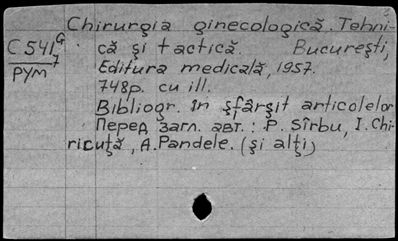 Chirurgia ginecologică. Tehni-
C 541 G/7
că şi tactică. Bucureşti,
РУМ
Editura medicală, 1957.
748p. cu ill.
Bibliogr. în şfârşit articolelor
Перед загл. авт.: P. Sîrbu, I. Chi-
ricuţă, A. Pandele. (şi alţi)